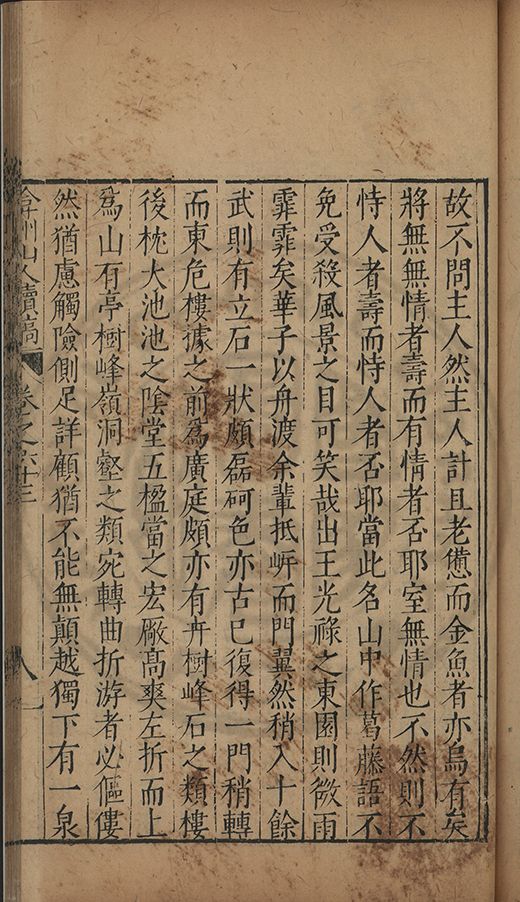 故不問主人然主人計且老憊而金魚者亦烏有矣
將無無情者壽而有情者否耶室無情也不然則不
恃人者壽而恃人者否耶當此名山中作葛藤語不
免受殺風景之目可笑哉出王光祿之東園則微雨
霏霏矣華子以舟渡余輩抵㟁而門翼然稍入十餘
武則有立石一狀頗磊砢色亦古已復得一門稍轉
而東危樓據之前為廣庭頗亦有卉樹峰石之類樓
後枕大池池之陰堂五楹當之宏敞高爽左折而上
為山有亭樹峰嶺洞壑之類宛轉曲折游者必傴僂
然猶慮觸險側足詳顧猶不能無顛越獨下有一泉
弇州山人續稿 卷之六十三 八